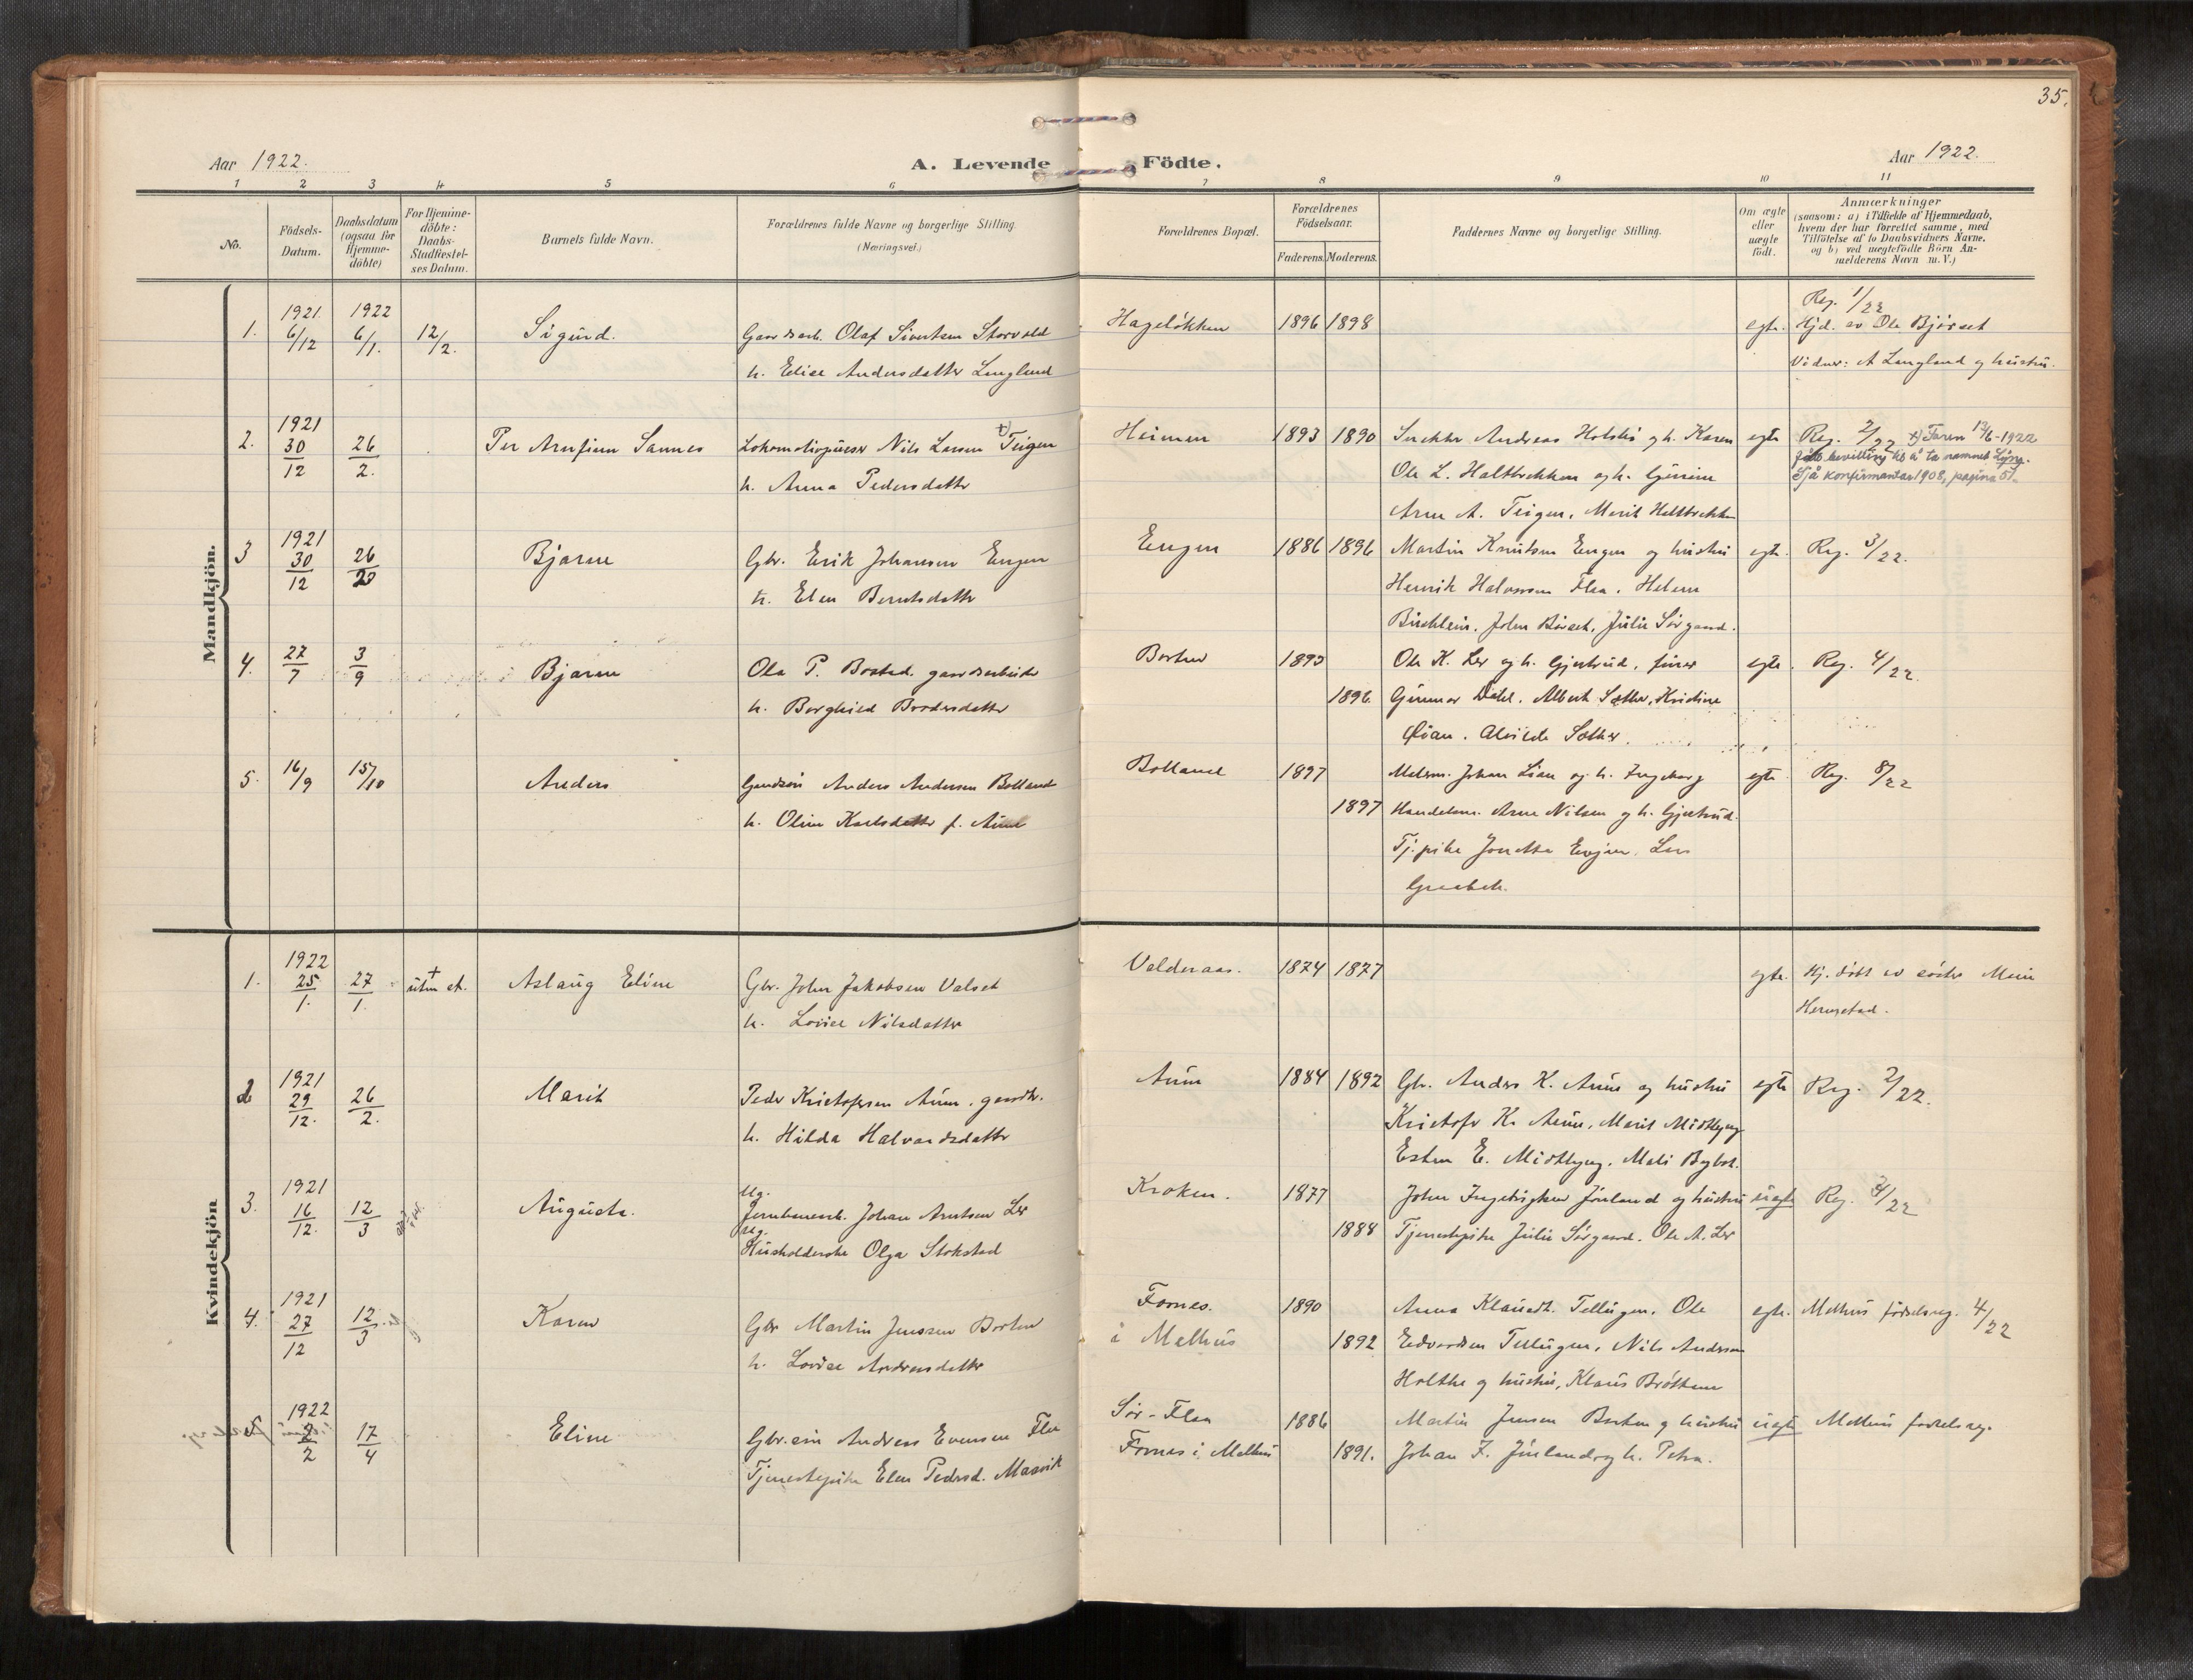 35.
Aar 1922.
A. Levende Födte.
Aar 1922.
1 2 3 4 5 6 7 8 9 10 11
No.
Födsels-
Datum.
Daabsdatum
(ogsaa for
Hjemme-
döbte)
For Hjemme-
döbte:
Daabs-
Stadfæstel-
ses Datum.
Barnets fulde Navn.
Forældrenes fulde Navne og borgerlige Stilling.
(Næringsvei.)
Forældrenes Bopæl.
Forældrenes
Födselsaar.
Faderens. Moderens.
Faddernes Navne og borgerlige Stilling.
Om ægte
eller
uægte
födt.
Anmærkninger
(saasom: a) i Tilfælde af Hjemmedaab,
hvem der har forrettet samme, med
Tilföielse af to Daabsvidners Navne.
og b) ved uægtefödte Börn An-
melderens Navn m. V.)
Mandkjön.
1. 1921 6/12 1922 6/1. 12/2. Sigurd. Gaardsarb. Olaf Sivertsen Storvold Hageløkken 1896 1898 egte. Reg. 1/22
Hjd. av Ole Bjørset
h. Elise Andersdatter Langland
Vidner: A Langland og hustru.
2. 1921 30/12 26/2. Per Arnfinn Sannes Lokomotivpusser Nils Larsen x) Teigen Heimen 1893 1890 Andreas Holstø og h. Karen egte Reg. 2/22 x) Faren 13/6-1922
fekk bevilling til å ta namnet Lyng.
Sjå konfirmantar 1908, pagina 57.
h. Anna Pedersdatter
Ole L. Haltbrekken og h. Gurine
Arne A. Teigen, Marit Haltbrekken
3 1921 30/12 26/2 Bjarne Gbr. Erik Johansen Engen Engen 1886 1896 Martin Knutsen Engen og hustru egte. Reg. 3/22.
h. Elen Berntsdatter
Henrik Halvorsen Flaa. Helene
John Børset, Julie Sørgaard.
4. 27/7 3/9 Bjarne Ola P. Borten gaardsarbeider Borten 1893 Ole K. Ler og h. Gjertrud, egte. Reg. 4/22
h. Borghild Brodersdatter 1896. Gunnar Dahl. Albert Sæther, Kristine
Øian. Alvilde Sæther.
5. 16/9 15/10 Anders Gaardsøn Anders Andersen Bolland Bolland 1897 Johan Lian og h. Ingeborg egte Reg. 8/22
h. Oline Karlsdatter f. Aune 1897 Handelsm. Arne Nilsen og h. Gjertrud.
Tj. pike Jonetta Evjen. Lars
Graabak.
Kvindekjön
1. 1922 25/1. 27/1. † uten st. Aslaug Eline Gbr. John Jakobsen Valset Valderaas. 1874 1877 egte. Hj. døbt av søster Marie
h. Lovise Nilsdatter
Hermstad.
2 1921 29/12. 26/2. Marit Peder Kristofersen Aune. gaardbr. Aune 1884 1892 Gbr. Anders K. Aune og hustru egte Reg. 2/22.
h. Hilda Halvardsdatter
Kristofer K. Aune, Marit Midtlyng
Esten E. Midtlyng. Mali Bybrot.
3. 1921 16/12. 12/3 Augusta. Ug.
Jernbanearb. Johan Arntsen Ler Kroken. 1877 John Ingebrigtsen Jønland og hustru uegte Reg. 3/22
Ug.
Husholderske Olga Stokstad 1888 Tjenestepike Julie Sørgaard. Ole A. Ler
4. 1921 27/12 12/3 Karen Gbr Martin Jensen Borten Fornes. 1890 Anna Klausdt. Tellugen. Ole egte. Melhus fødselsreg. 4/22
h. Lovise Andreasdatter i Melhus 1892 Edvardsen Tellugen, Nils Andersen
Holthe og hustru, Klaus Bråttem
5 1922 2/2 17/4 Eline Gbr. søn Andreas Evensen Flaa Sør-Flaa 1886 Martin Jensen Borten og hustru uegte Melhus fødselsreg.
Tjenestepike Elen Pedersd. Maavik Fornes i Melhus 1891. Johan J. Jønland og h. Petra.